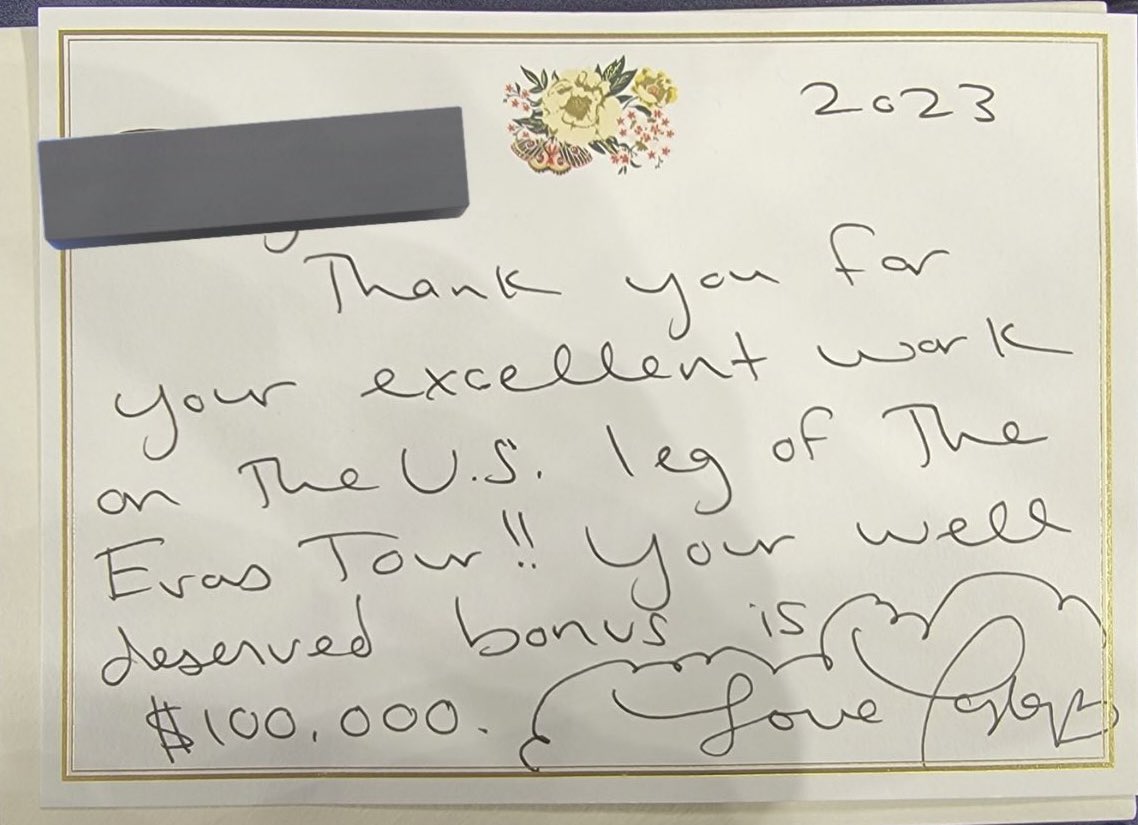 2023
Thank you for
your excellent work
on The U.S. leg of The
Eras Tour!! Your well
deserved bonus is
$100,000.
Love Taylor